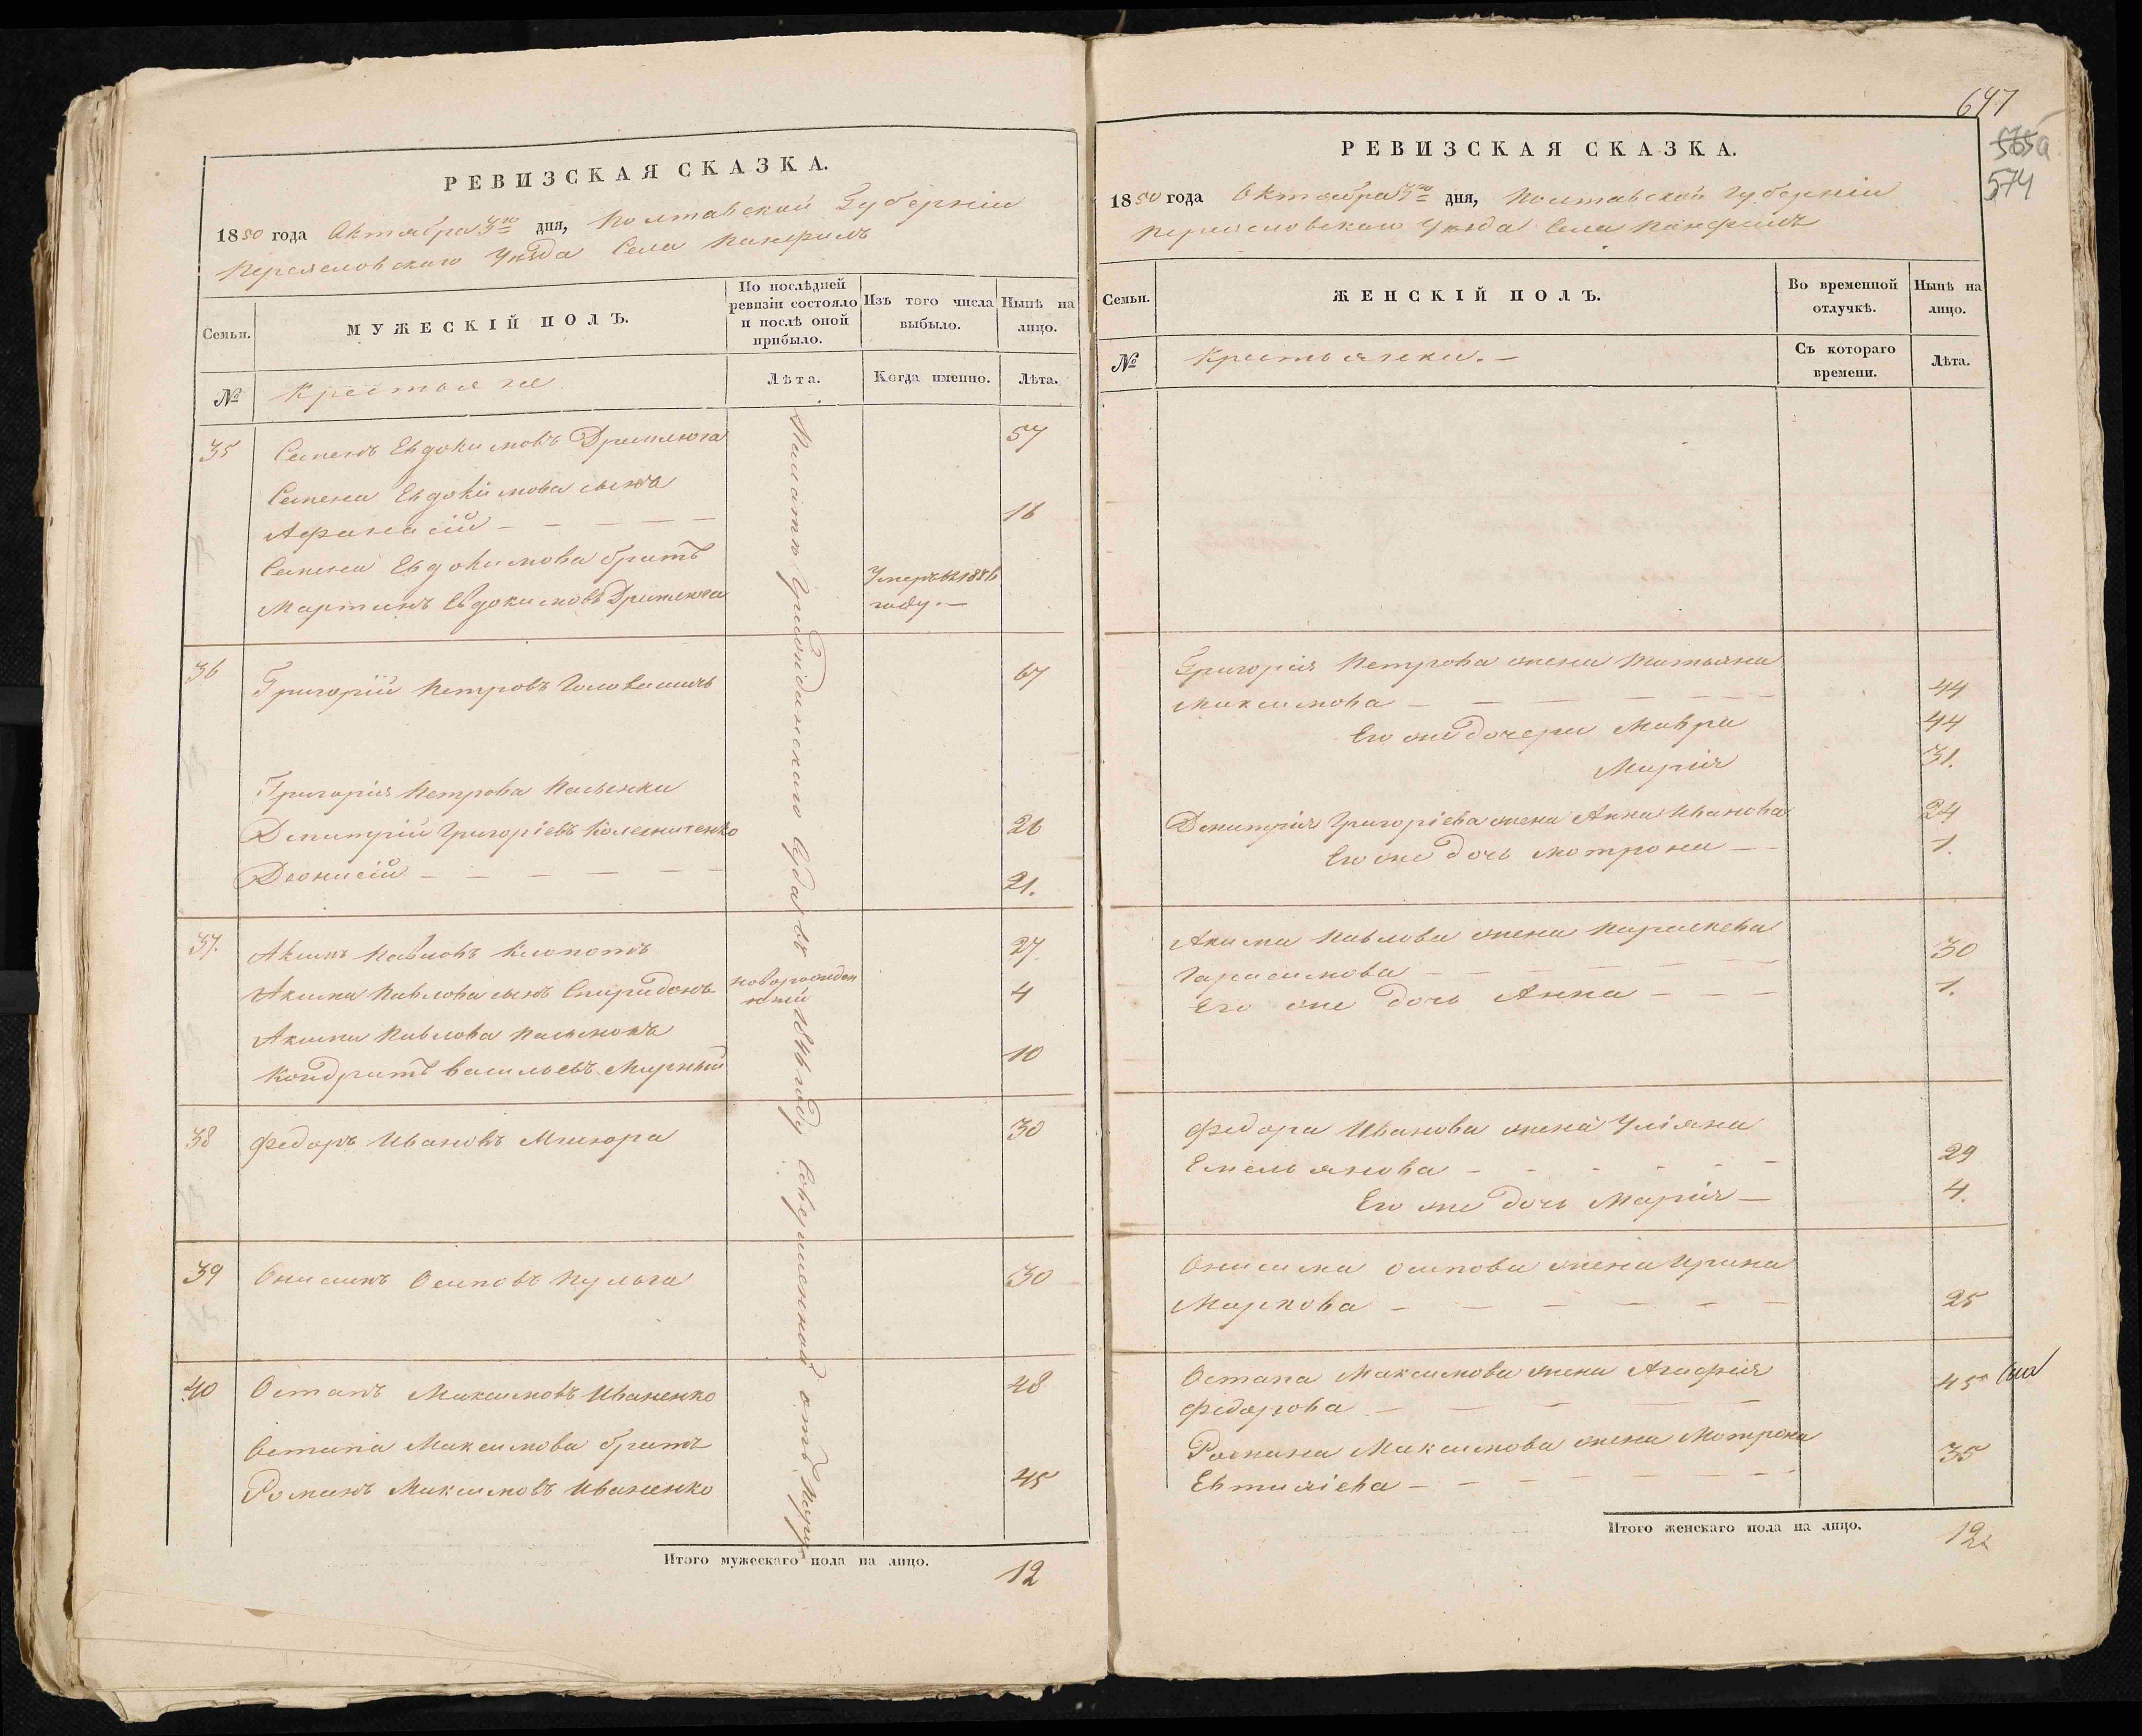 РЕВИЗСКАЯ СКАЗКА.
1850 года Октября 3го дня, Полтавской Губерніи
Переясловскаго Уѣзда Села Панфилъ
Семьи.
МУЖЕСКІЙ ПОЛЪ.
По послѣдней ревизіи состояло и послѣ оной прибыло.
Изъ того числа выбыло.
Нынѣ на лицо.
№
Крестьяне
Лѣта.
Когда именно.
Лѣта.
35 Семенъ Евдокимовъ 57
Семена Евдокимова сынъ
Афанасій — — — — — 16
Семена Евдокимова братъ
Мартинъ Евдокимовъ Умеръ въ году.—
36 Григорій Петровъ 67
Григорія Петрова Пасынки
Дмитрій Григоріевъ Колесниченко 26
Діонисій — — — — — — 21.
37. Акимъ Павловъ Клопотъ 27
Акима Павлова сынъ Спиридонъ новорожденный 4
Акима Павлова пасынокъ
Кондратъ Васильевъ Мирный 10
38 Федоръ Ивановъ 30
39 Онисимъ Осиповъ Кульга 30
40 Остапъ Максимовъ Иваненко 48
Остапа Максимова братъ
Романъ Максимовъ Иваненко 45
году совершенной отъ
Итого мужескаго пола на лицо. 12
647
565а
574
РЕВИЗСКАЯ СКАЗКА.
1850 года Октября 3го дня, Полтавской Губерніи
Переясловскаго Уѣзда Села Панфилъ
Семьи.
ЖЕНСКІЙ ПОЛЪ.
Во временной отлучкѣ.
Нынѣ на лицо.
№
Крестьянки.—
Съ котораго времени.
Лѣта.
Григорія Петрова жена Татьяна
Максимова — — — — — — 44
Его же дочери Мавра 44
Марія 31.
Дмитрія Григоріева жена Анна Иванова 24
Его же дочь Мотрона — — 1.
Акима Павлова жена Параскева
Гарасимова — — — — — 30
Его же дочь Анна — — — 1.
Федора Иванова жена Уліяна
Емельянова — — — — — — 29
Его же дочь Марія — 4.
Онисима Осипова жена Ирина
Маркова — — — — — — 25
Остапа Максимова жена Агафія
Федорова — — — — — 45
Романа Максимова жена Мотрона
Евтихіева — — — — — — 35
Итого женскаго пола на лицо. 12